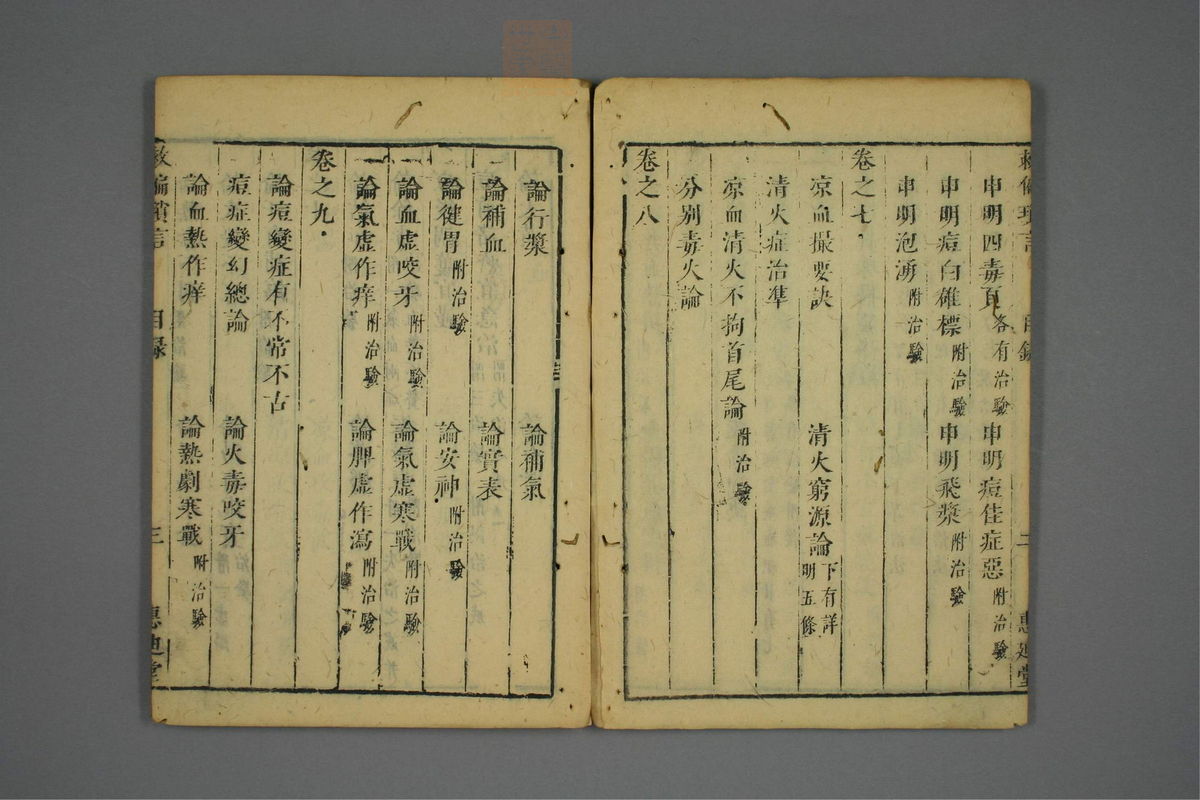 申明四毒頂 各有治驗 申明痘佳症惡 附治驗
申明痘白雄標 附治驗 申明飛漿 附治驗
申明泡湧 附治驗
卷之七
凉血撮要訣 清火窮源論 下有詳明五條
清火症治準
凉血清火不拘首尾論 附治驗
分別毒火論
卷之八
論行漿 論補氣
論補血 論實表
論健胃 附治驗 論安神 附治驗
論血虛咬牙 附治驗 論氣虛寒戰 附治驗
論氣虛作痒 附治驗 論脾虛作瀉 附治驗
卷之九
論痘變症有不常不古
痘症變幻總論 論火毒咬牙
論血熱作痒 論熱劇寒戰 附治驗
救偏瑣言 目録 三 惠迪堂